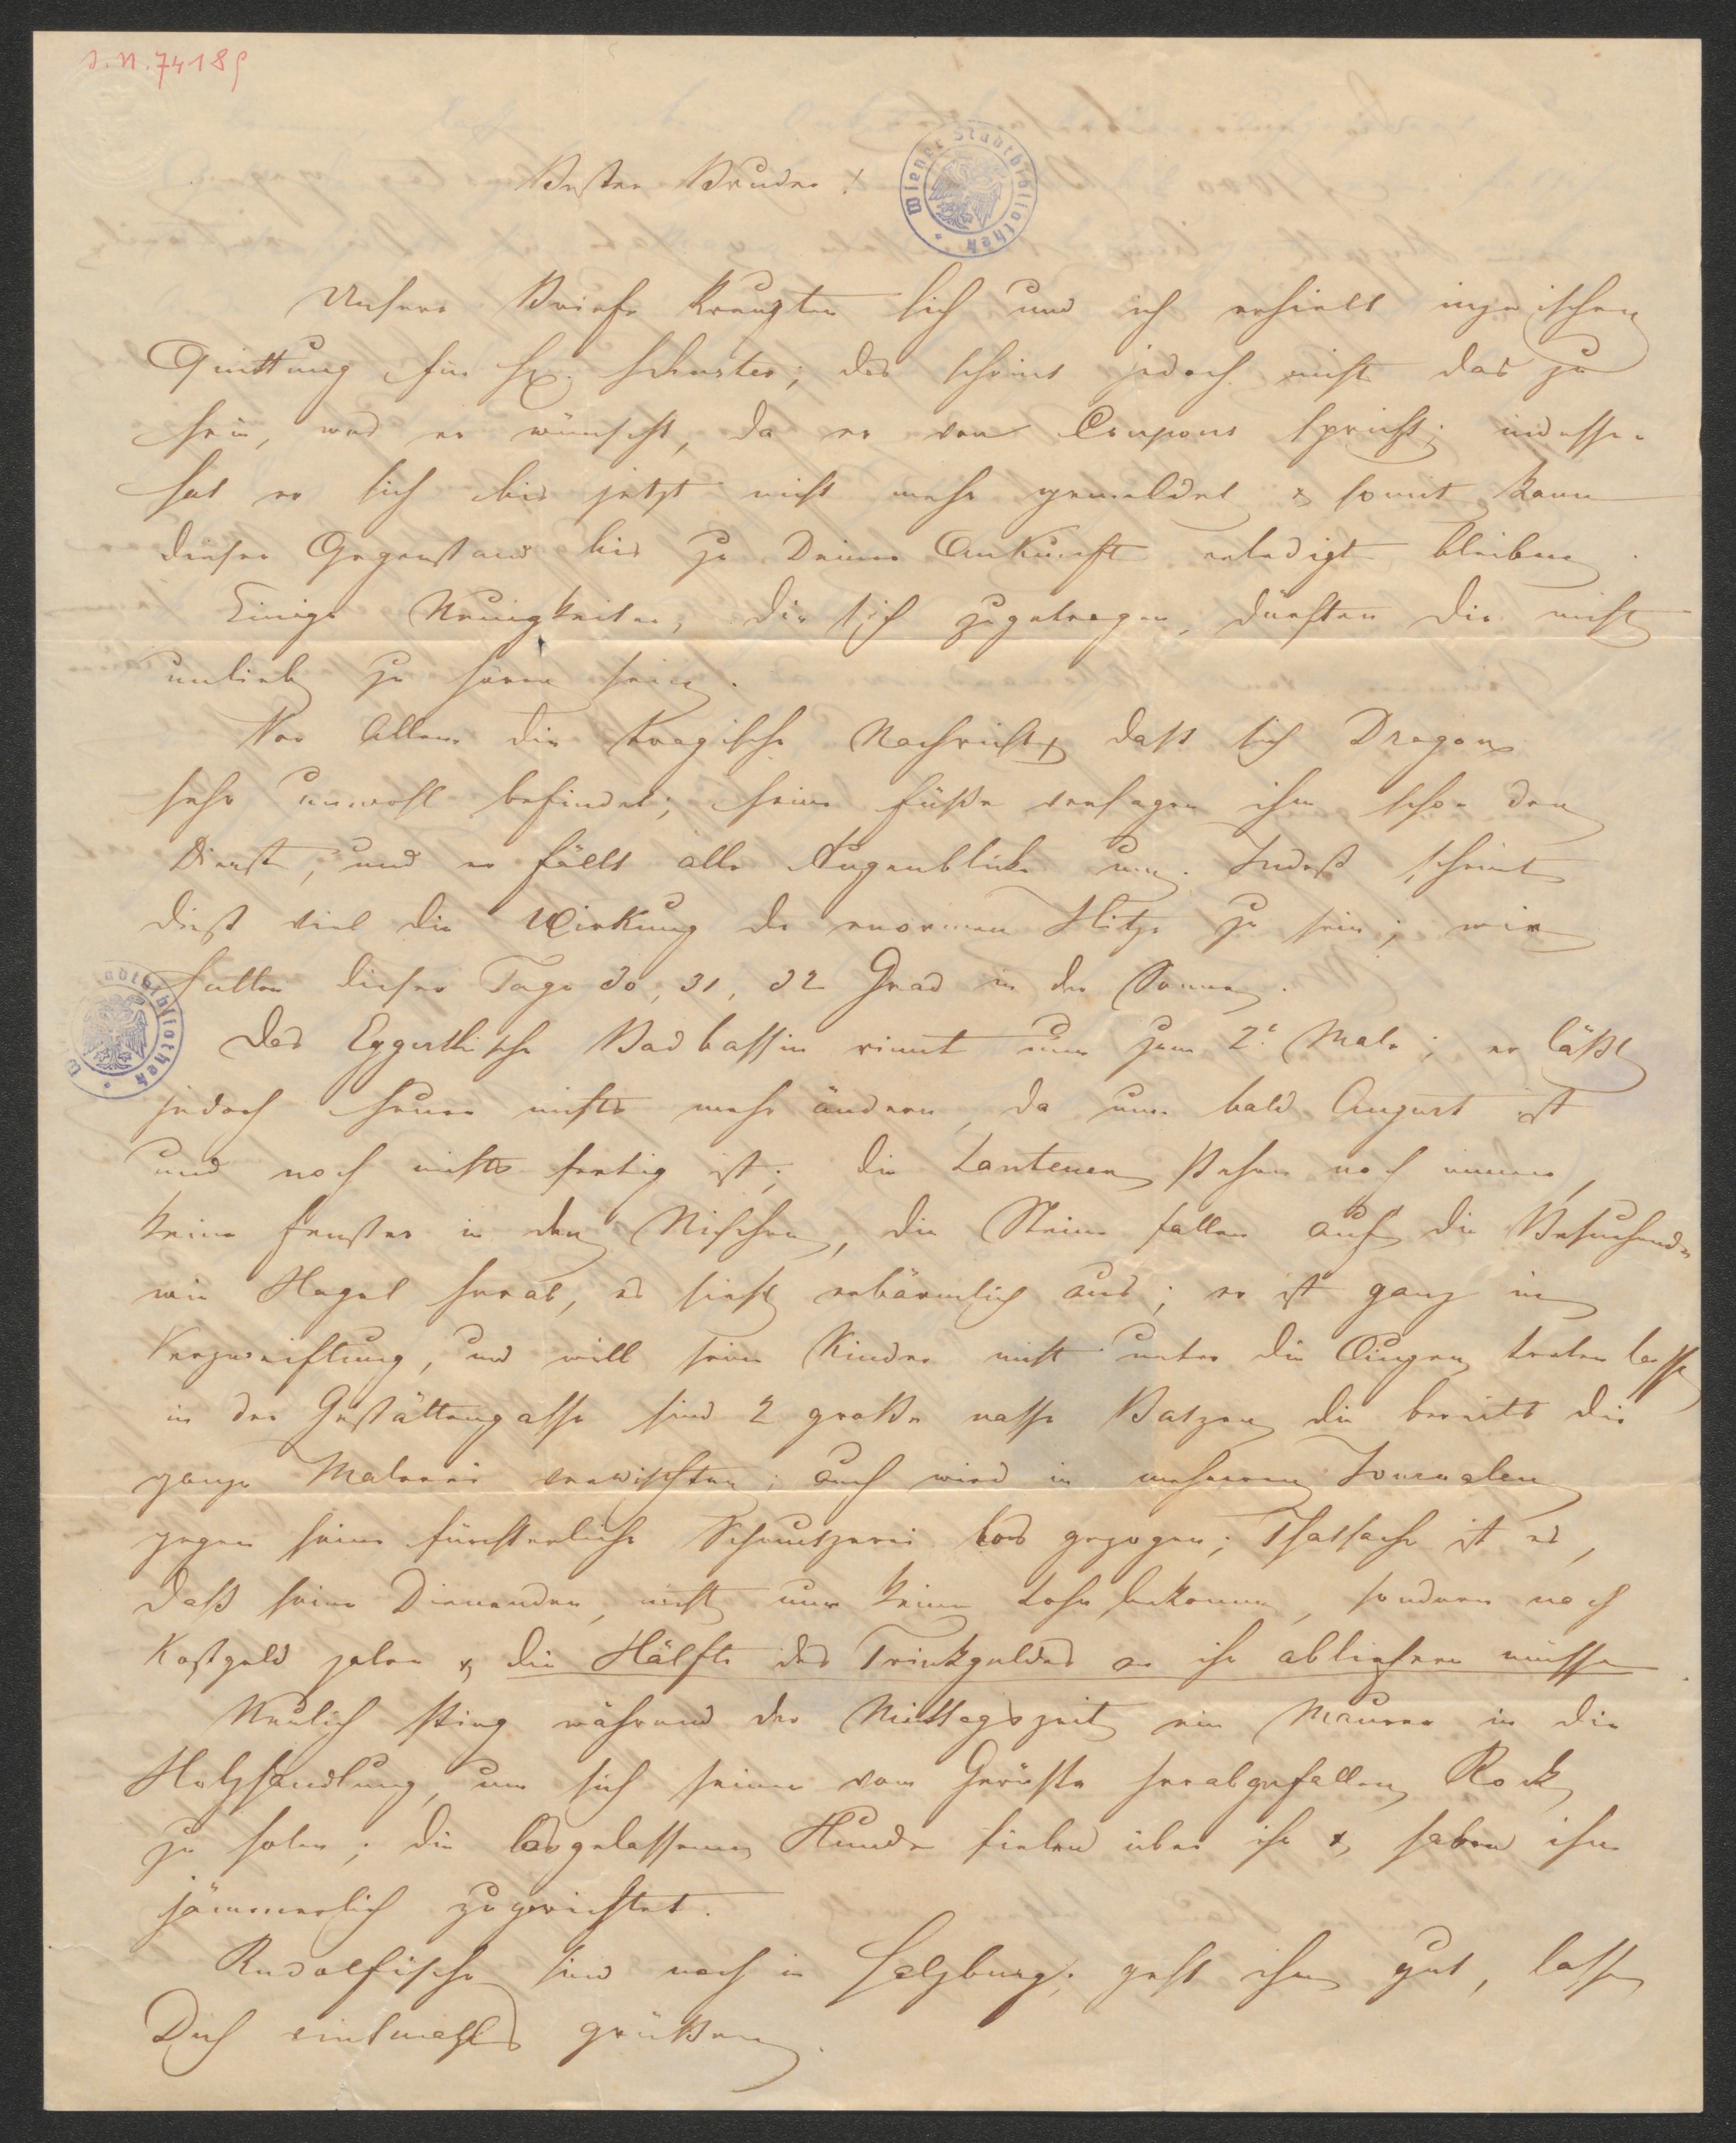 J. N. 74189
Bester Bruder!
Wiener Stadtbibliothek
Unsere Briefe kreuzten sich und ich erhielt inzwischen
Quittung für H. Schuster; das scheint jedoch nicht das zu
sein, was er wünscht, da er von Coupons spricht; indessen
hat er sich bis jetzt nicht mehr gemeldet & somit kann
dieser Gegenstand bis zu Deiner Ankunft erledigt bleiben.
Einige Neuigkeiten, die sich zugetragen, dürften Dir nicht
unlieb zu hören sein.
Vor Allem die tragische Nachricht, daß sich Dragon
sehr unwohl befindet; seine Füße versagen ihm schon den
Dienst, und er fällt alle Augenblicke um. Indeß scheint
dieß viel die Wirkung der enormen Hitze zu sein; wir
hatten dieser Tage 30, 31, 32 Grad in der Sonne.
Stadtbibliothek
Das Eggerthische Badbassin rinnt nun zum 2t. Male; er läßt
jedoch heuer nichts mehr ändern, da nun bald August ist
und noch nichts fertig ist; die stehen noch immer,
keine Fenster in den Nischen, die Steine fallen auf die Besuchenden
wie Hagel herab, es sieht erbärmlich aus; er ist ganz in
Verzweiflung, und will seine Kinder nicht unter die Augen treten lassen
in der Gestättengasse sind 2 große nasse Batzen die bereits die
ganze Malerei verwischten; auch wird in mehreren Journalen
gegen seine fürchterliche Schmutzerei los gezogen; Thatsache ist es,
daß seine Dienenden, nicht nur keinen Lohn bekommen, sondern noch
Kostgeld zalen & die Hälfte des Trinkgeldes an ihn abliefern müssen.
Neulich stieg während der Mittagszeit ein Maurer in die
Holzhandlung, um sich seinen vom Gerüste herabgefallenen Rock
zu holen; die losgelassenen Hunde fielen über ihn & haben ihn
jämmerlich zugerichtet.
Rudolfische sind noch in Salzburg; geht ihnen gut, lassen
Dich vielmahls grüßen.